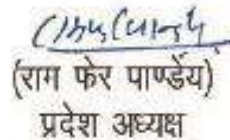 (राम फेर पाण्डेंय)
प्रदेश अध्यक्ष